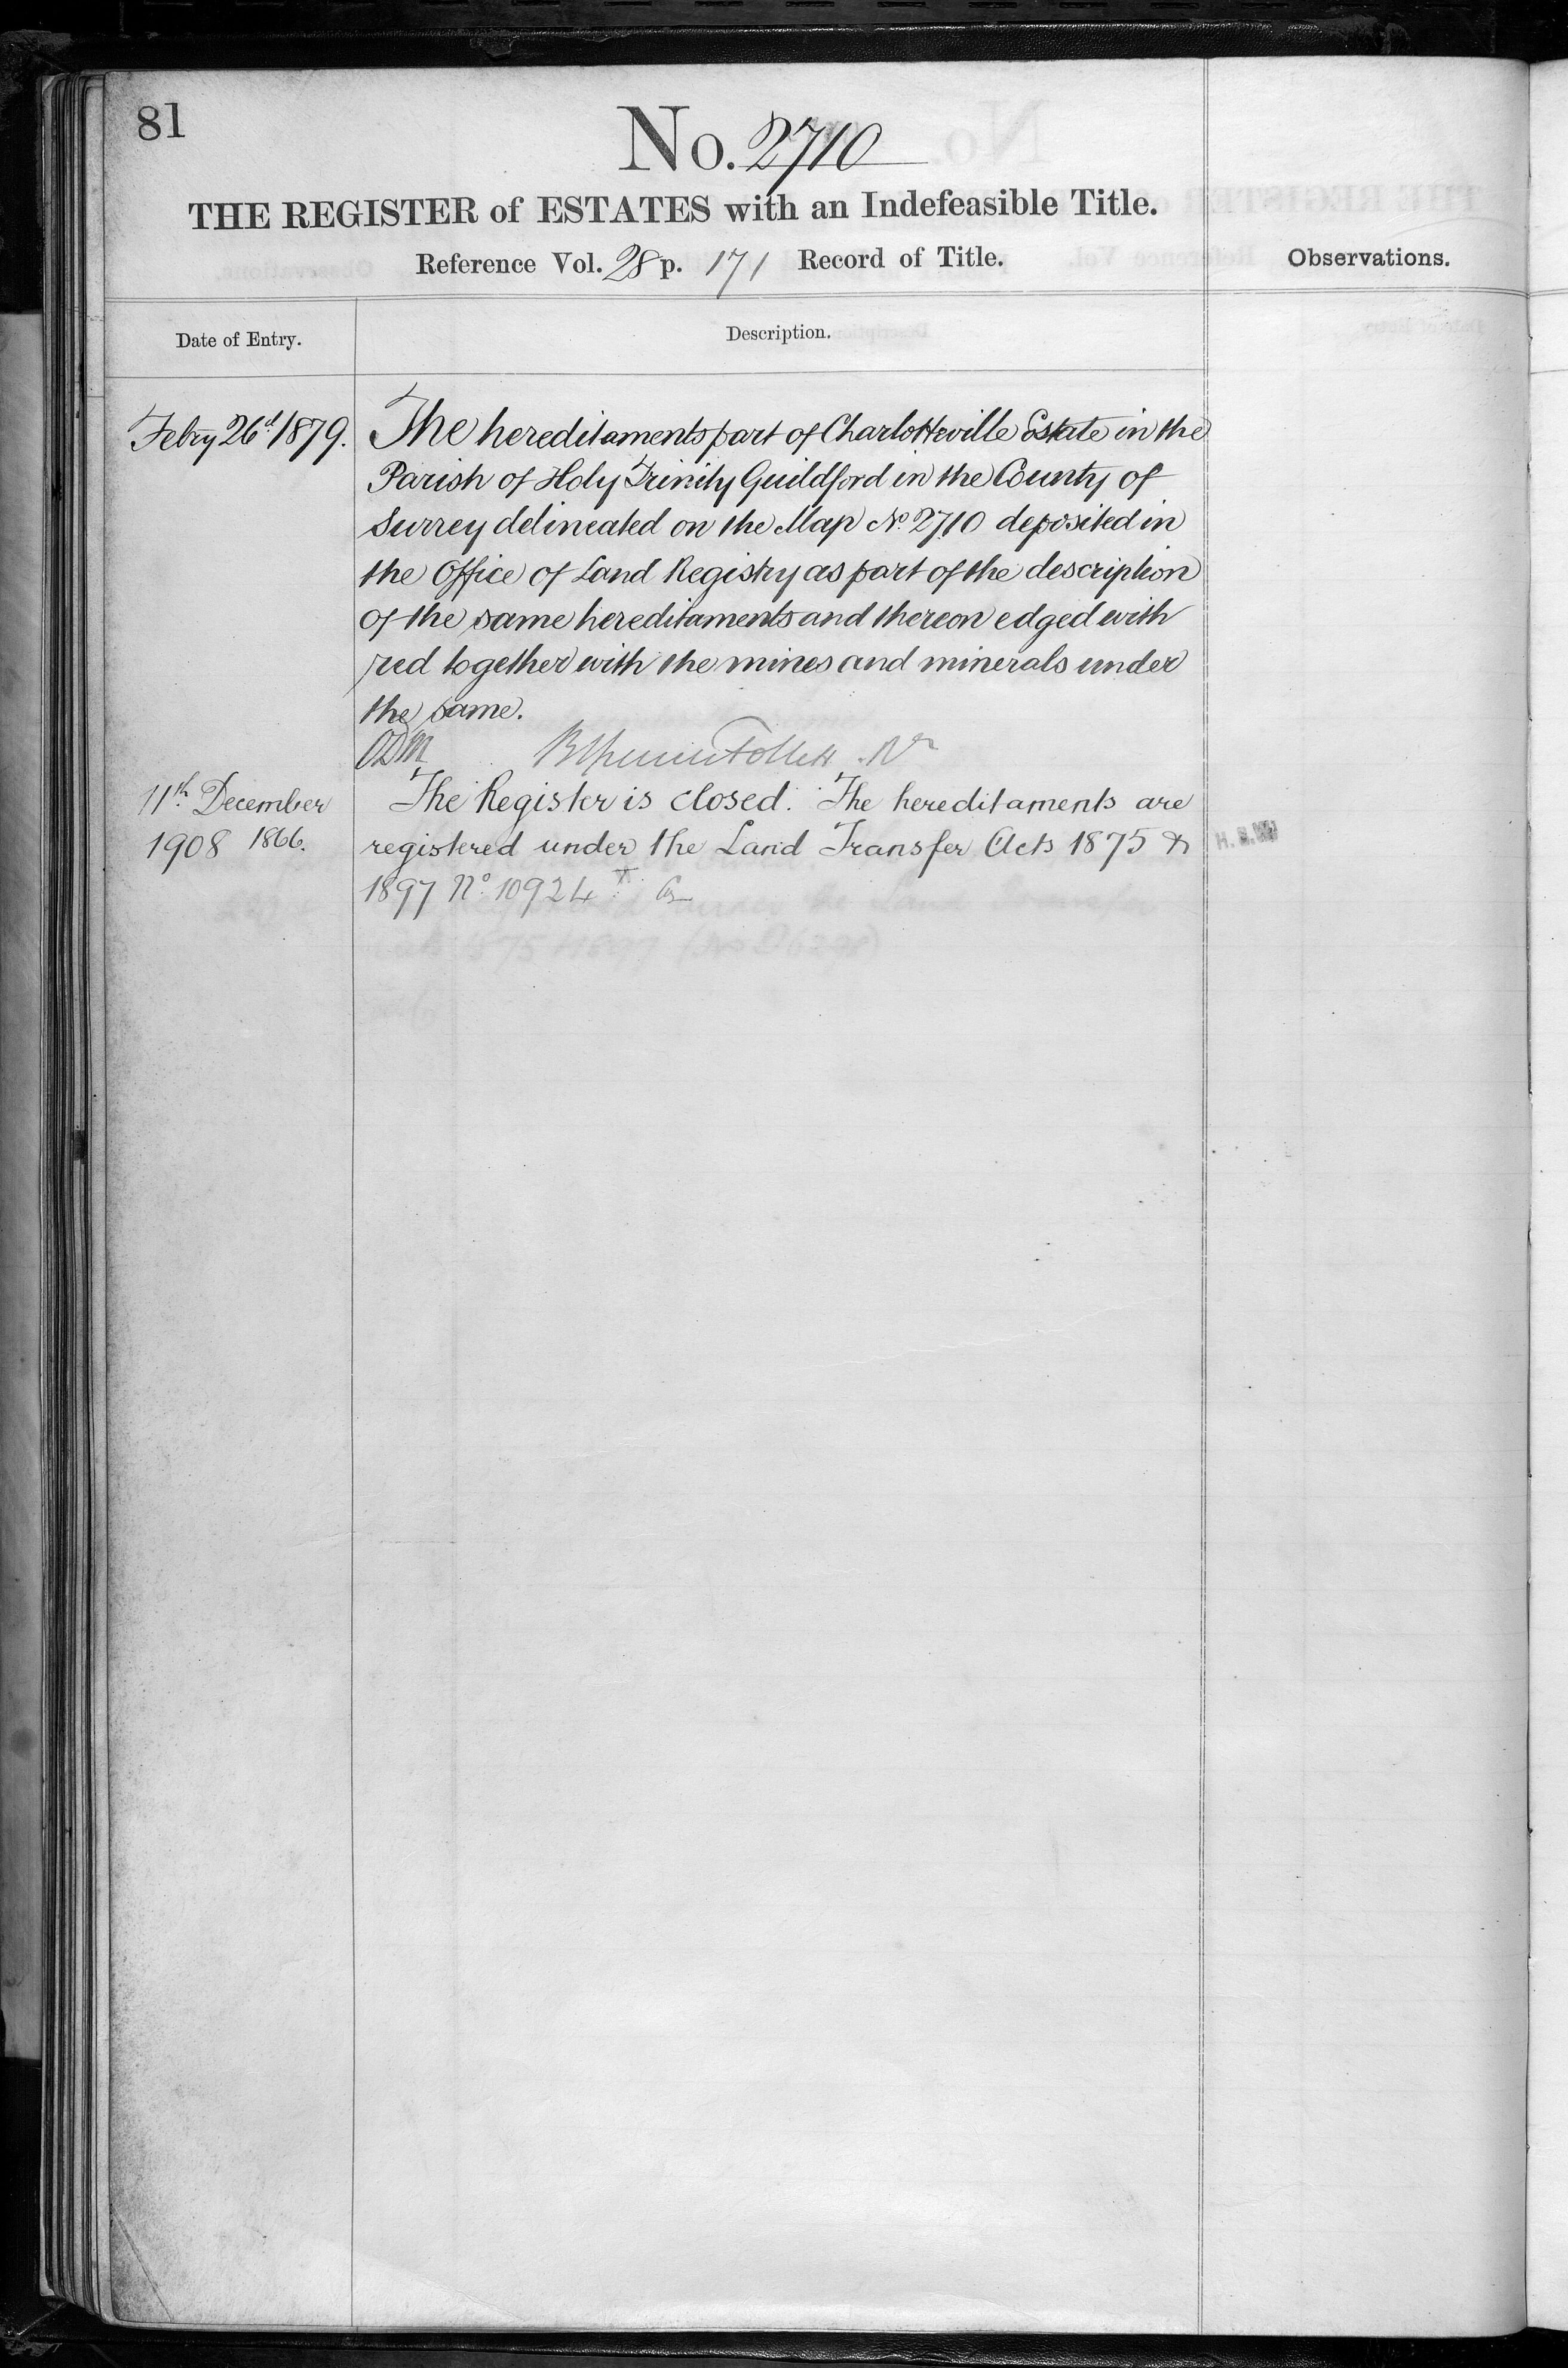 81
No. 2710
THE REGISTER of ESTATES with an Indefeasible Title.
Reference Vol. 28 p. 171 Record of Title.
Observations.
Date of Entry.
Description.
Febry 26th 1879.
The hereditaments part of Charlotteville Estate in the
Parish of Holy Trinity Guildford in the County of
Surrey delineated on the Map No. 2710 deposited in
the Office of Land Registry as part of the description
of the same hereditaments and thereon edged with
red together with the mines and minerals under
the same.
ODM Follett Rr
11th December
1908 1866.
The Register is closed. The hereditaments are
registered under the Land Transfer Acts 1875 &
1897 No. 10924